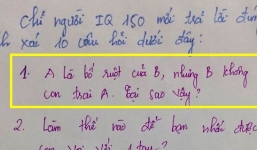 Chỉ người IQ 150 mới trả lời đún
h xác 10 câu hỏi dưới đây:
1. A là bố ruột của B, nhưng B không
con trai A. Tại sao vậy?
2. Làm thế nào để bạn nhấc được